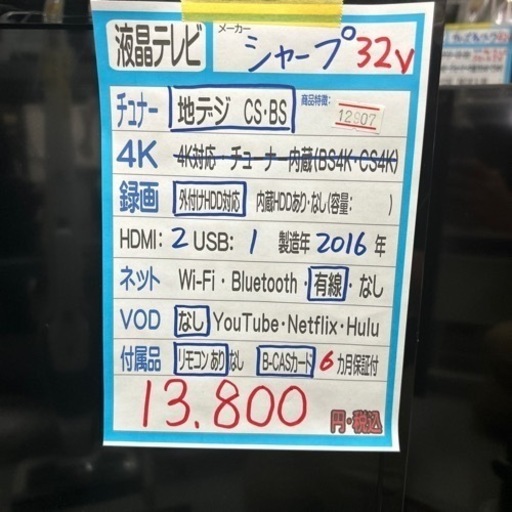 液晶テレビ
メーカー
シャープ 32v
チュナー 地デジ CS・BS 商品特徴: 12907
4K 4K対応・チューナー内蔵(BS4K・CS4K)
録画 外付けHDD対応 内蔵HDDあり・なし(容量: )
HDMI: 2 USB: 1 製造年 2016 年
ネット Wi-Fi・Bluetooth・有線・なし
VOD なし YouTube・Netflix・Hulu
付属品 リモコンあり なし B-CASカード 6カ月保証付
13.800 円・税込